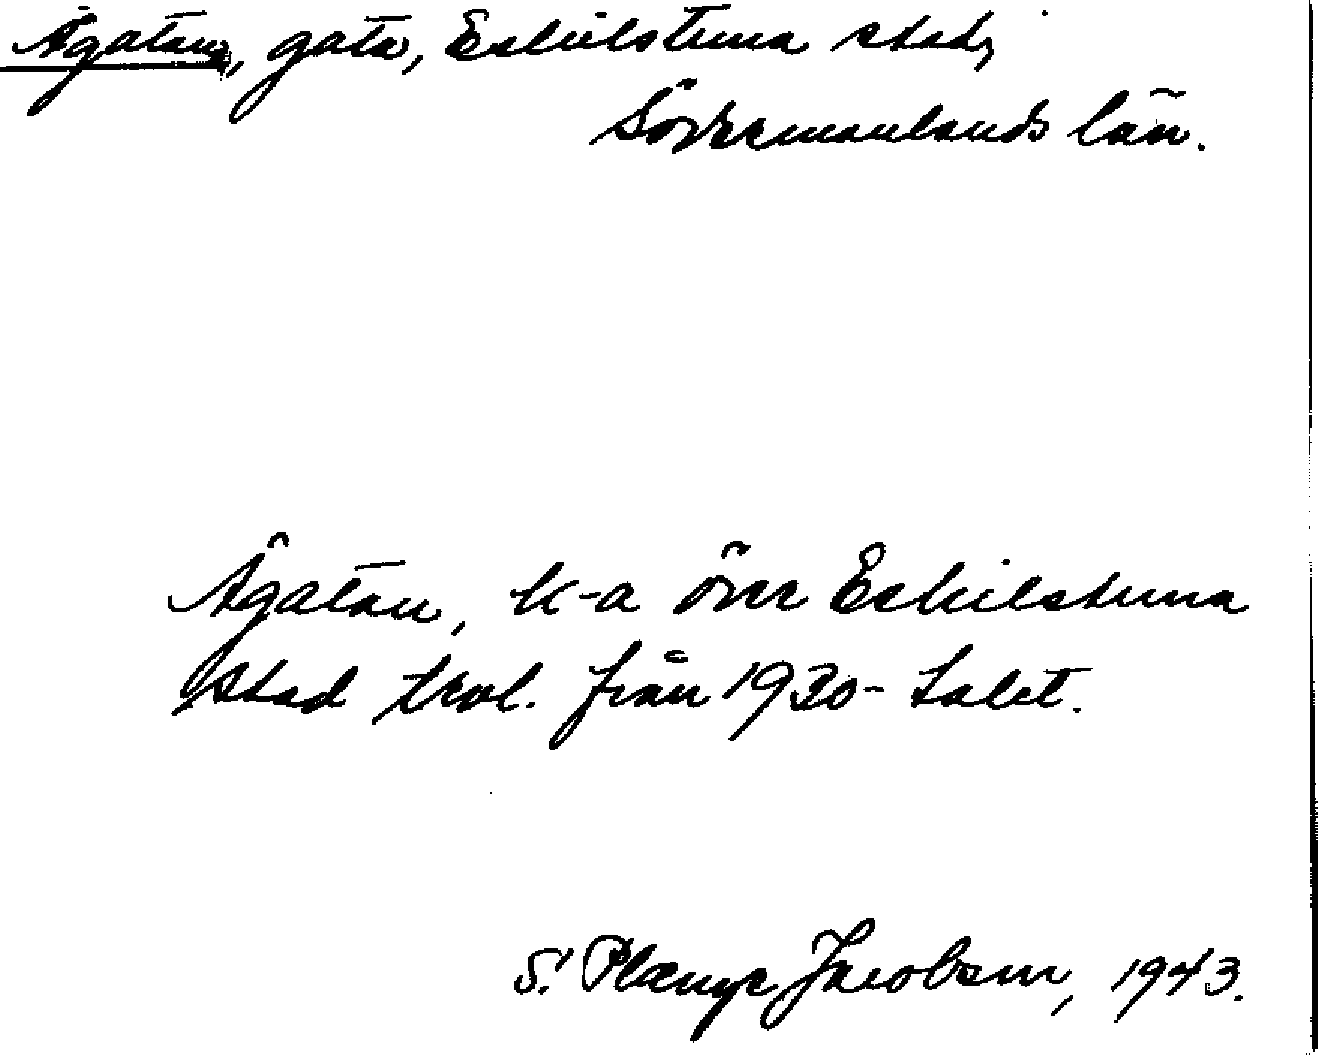 Ågatan, gata, Eskilstuna stad,
Södermanlands län.
Ågatan, K-a över Eskilstuna
stad trol. från 1930-talet.
S. Plænge Jacobson, 1943.